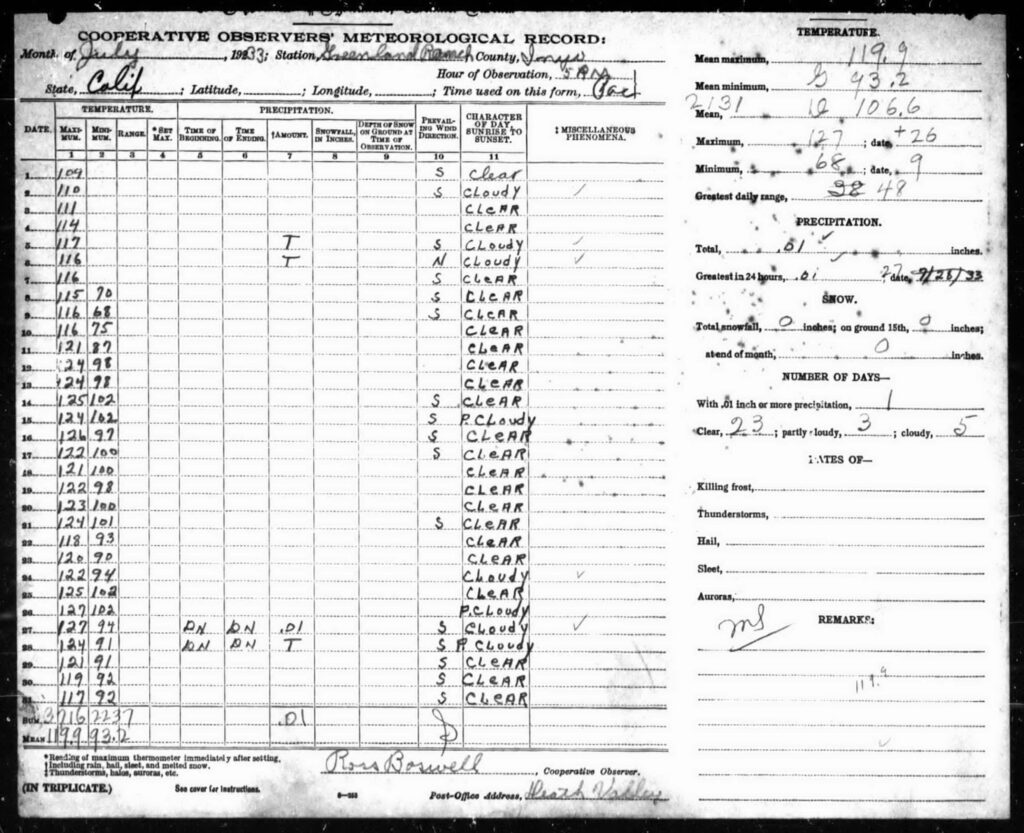 COOPERATIVE OBSERVERS' METEOROLOGICAL RECORD:
Month of July, 1933; Station, Greenland Ranch County, Inyo
Hour of Observation, 5 PM
State, Calif; Latitude, ; Longitude, ; Time used on this form, Pac
DATE. TEMPERATURE. PRECIPITATION. PREVAILING WIND DIRECTION. CHARACTER OF DAY, SUNRISE TO SUNSET. ‡MISCELLANEOUS PHENOMENA.
MAXIMUM. MINIMUM. RANGE. *SET MAX. TIME OF BEGINNING. TIME OF ENDING. †AMOUNT. SNOWFALL, IN INCHES. DEPTH OF SNOW ON GROUND AT TIME OF OBSERVATION.
1 2 3 4 5 6 7 8 9 10 11
1 109 S Clear
2 110 S CLOUDY ✓
3 111 CLEAR
4 114 CLEAR
5 117 T S CLOUDY ✓
6 116 T N CLOUDY ✓
7 116 S CLEAR
8 115 70 S CLEAR
9 116 68 S CLEAR
10 116 75 CLEAR
11 121 87 CLEAR
12 124 98 CLEAR
13 124 98 CLEAR
14 125 102 S CLEAR
15 124 102 S P. CLOUDY
16 126 97 S CLEAR
17 122 100 S CLEAR
18 121 100 CLEAR
19 122 98 CLEAR
20 123 100 CLEAR
21 124 101 S CLEAR
22 118 93 CLEAR
23 120 90 CLEAR
24 122 94 CLOUDY ✓
25 125 102 CLEAR
26 127 102 P. CLOUDY
27 127 94 DN DN .01 S CLOUDY ✓
28 124 91 DN DN T S P CLOUDY
29 121 91 S CLEAR
30 119 92 S CLEAR
31 117 92 S CLEAR
SUM 3716 2237 .01
MEAN 119.9 93.2
*Reading of maximum thermometer immediately after setting.
†Including rain, hail, sleet, and melted snow.
‡Thunderstorms, halos, auroras, etc.
Ross Boswell, Cooperative Observer.
(IN TRIPLICATE.) See cover for instructions. Post-Office Address, Death Valley
TEMPERATURE.
Mean maximum, 119.9
Mean minimum, 93.2
2131
Mean, 106.6
Maximum, 127; date, +26
Minimum, 68; date, 9
Greatest daily range, 38 48
PRECIPITATION.
Total, .01 ✓ inches.
Greatest in 24 hours, .01 27 date,
SNOW.
Total snowfall, 0 inches; on ground 15th, 0 inches;
at end of month, 0 inches.
NUMBER OF DAYS—
With .01 inch or more precipitation, 1
Clear, 23; partly cloudy, 3; cloudy, 5
DATES OF—
Killing frost,
Thunderstorms,
Hail,
Sleet,
Auroras,
REMARKS:
119.9